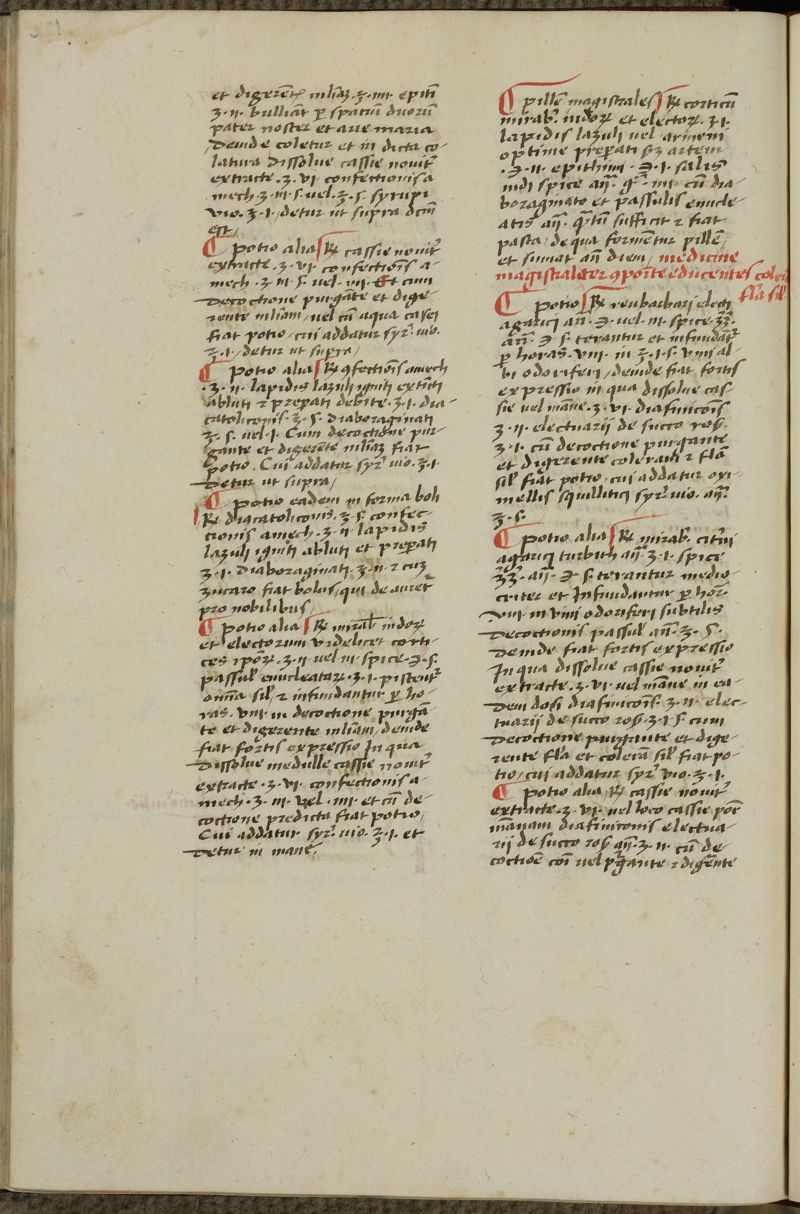 et digerēte mliaz .ʒ. iiii epiti
ʒ. ii. bulliāt p̄ spaciū duorū
pater noster et aue maria
deinde coletur et in dicta co-
latura dissolue cassie nouit᷑
extracte .ʒ. vi confectionis a
mech .ʒ. iii. s. vel .ʒ. s. syrupi
vio. ʒ. i. detur ut supra dcm̄
est,
¶ potio alia ℞ cassie nouit᷑
extracte .ʒ. vi confectiōis a-
mech .ʒ. iii. s. vel iiii. Et cum
decoctione purgāte et dige-
rente mliam, vel cū aqua casei
fiat potio, cui addatur syr᷑ vio.
ʒ. i. detur ut supra,
¶ potio alia ℞ ꝯfectiōis amech
.ʒ. ii. lapidis lazuli igniti extīcti
abluti ⁊ preparati debite .ʒ. i. dia-
catoliconis .ʒ. s. diaboraginati
ʒ. s. vel. i. Cum decoctione pur-
gante et digerēte mliaz fiat
potio. Cui addatur syr᷑ vio. ʒ. i.
Detur ut supra,
¶ potio eadem in forma boli
℞ diacatoliconis. ʒ. s. confec-
tionis amech .ʒ. ii. lapidis
lazuli igniti abluti et preparati
ʒ. i. diaboraginati .ʒ. ii. ⁊ cuz
zucaro fiat bolus, qui deauret᷑
pro nobilibus,
¶ potio alia ℞ mirab. indoꝝ
et electorum videlicet corti-
ces ipoꝝ .ʒ. ii. vel iii. spice .Э. s.
passul. enucleataꝝ .ʒ. i. pistent᷑
omīa sil' ⁊ infundantur p̄ ho-
ras. viii. in decoctione purgā-
te et digerente mliam, deinde
fiat fortis expressio In qua
dissolue medulle cassie nouit᷑
extracte .ʒ. vi. confectionis a-
mech .ʒ. iii. vel. iiii. et cū de-
coctione predicta fiat potio,
Cui addatur syr᷑ vio. ʒ. i. et
detur in mane.
¶ pillule magistrales ℞ corticū
mirab᷑. indoꝝ et electoꝝ. ʒ. i.
lapidis lazuli vel armeni
optime preparati sz artem
.Э. ii. epithimi .Э. i. salis
indi spice an̄. gᷓ. iiii. cū dia-
boraginato et passulis enucle-
atis an̄. qᷓtū sufficit ⁊ fiat
pasta, de qua formētur pillule,
et sumat an̄ diem, medicine
magistraliter ꝯpoīte educentes colerā
flā sil'
¶ potio ℞ reubarbari electi
agarici an̄. Э. vel. iii. spice. ʒʒ.
an̄. Э. s. terantur et infundāt᷑
p̄ horas. viii. in ʒ. i. s. vini al-
bi odoriferi, deinde fiat fortis
expressio in qua dissolue cas-
sie vel māne. ʒ. vi. diafiniconis
ʒ. ii. electuarii de succo ros.
ʒ. i. cū decoctione purgante
et digerente coleram ⁊ flā
sil' fiat potio, cui addatur oxi-
mellis squillitici syr᷑ vio. an̄.
ʒ. s.
¶ potio alia ℞ mirab᷑. citrii
agarici turbith an̄. ʒ. i. spice
ʒʒ. an̄. Э s. terantur medio
criter et Infundantur p̄ hor᷑.
viii. in vini odoriferi subtilis
decoctionis passul. an̄. ʒ. s.
deinde fiat fortis expressio
In qua dissolue cassie nouit᷑
extracte .ʒ. vi. vel māne in ea-
dem dosi diafiniconis .ʒ. ii. elec-
tuarii de succo ros. ʒ. i. s cum
decoctione purgante et dige-
rente flā et colerā sil' fiat po-
tio, cui addatur syr᷑ vio. ʒ. i.
¶ potio alia, ℞ cassie nouit᷑
extracte .ʒ. vi. vel loco cassie pōē
mānam diafiniconis electua-
rii de succo ros. an̄. ʒ. ii. cū de-
coctiōe cōi vel pᷓgante ⁊ digēnte